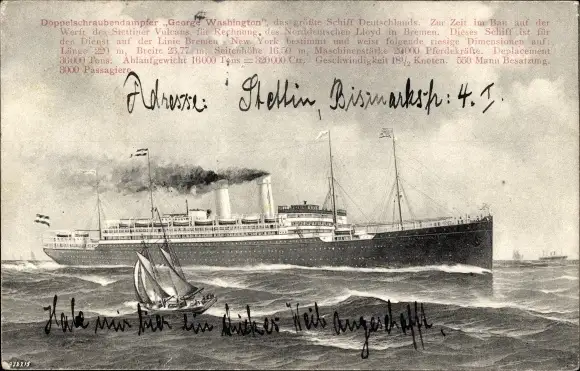 Doppelschraubendampfer „George Washington“, das größte Schiff Deutschlands. Zur Zeit im Bau auf der
Werft des Stettiner Vulcans, für Rechnung des Norddeutschen Lloyd in Bremen. Dieses Schiff ist für
den Dienst auf der Linie Bremen - New York bestimmt und weist folgende riesige Dimensionen auf:
Länge 220 m, Breite 23,77 m, Seitenhöhe 16,50 m, Maschinenstärke 20000 Pferdekräfte. Deplacement
36000 Tons. Ablaufgewicht 16000 Tons = 320000 Ctr. Geschwindigkeit 18½ Knoten. 550 Mann Besatzung.
3000 Passagiere.
Adresse: Stettin, Bismarkstr: 4. I.
Habe mir hier ein Weib angeschafft.